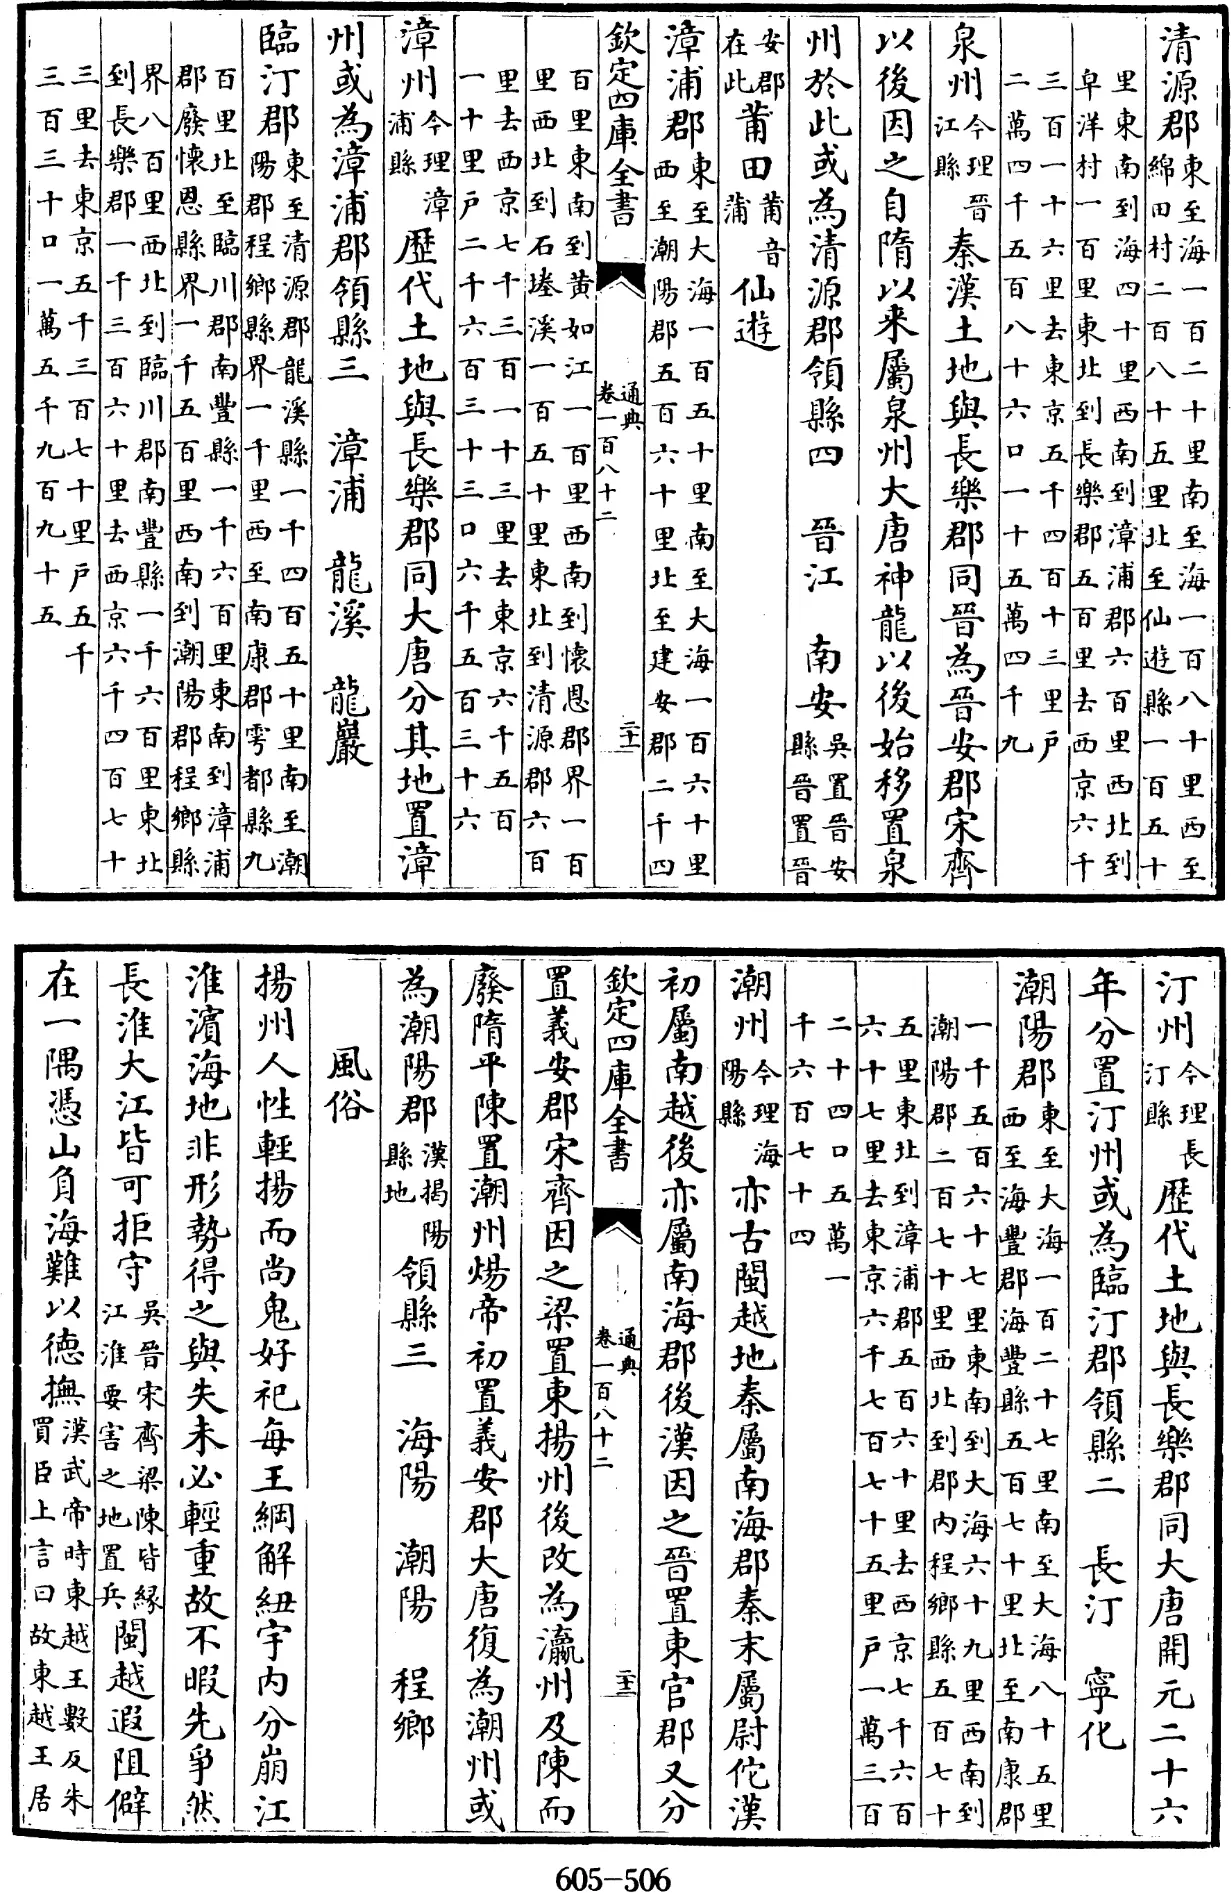 清源郡東至海一百二十里南至海一百八十里西至
綿田村二百八十五里北至仙遊縣一百五十
里東南到海四十里西南到漳浦郡六百里西北到
皁洋村一百里東北到長樂郡五百里去西京六千
三百一十六里去東京五千四百十三里戶
二萬四千五百八十六口一十五萬四千九
泉州今理晉江縣秦漢土地與長樂郡同晉為晉安郡宋齊
以後因之自隋以来屬泉州大唐神龍以後始移置泉
州於此或為清源郡領縣四 晉江 南安吳置晉安縣晉置晉
安郡在此莆田莆音蒲 仙遊
漳浦郡東至大海一百五十里南至大海一百六十里
西至潮陽郡五百六十里北至建安郡二千四
欽定四庫全書 通典 卷一百八十二 二十一
百里東南到黃如江一百里西南到懷恩郡界一百
里西北到石堘溪一百五十里東北到清源郡六百
里去西京七千三百一十三里去東京六千五百
一十里戶二千六百三十三口六千五百三十六
漳州今理漳浦縣歴代土地與長樂郡同大唐分其地置漳
州或為漳浦郡領縣三 漳浦 龍溪 龍巖
臨汀郡東至清源郡龍溪縣一千四百五十里南至潮
陽郡程鄉縣界一千里西至南康郡雩都縣九
百里北至臨川郡南豐縣一千六百里東南到漳浦
郡廢懷恩縣界一千五百里西南到潮陽郡程鄉縣
界八百里西北到臨川郡南豐縣一千六百里東北
到長樂郡一千三百六十里去西京六千四百七十
三里去東京五千三百七十里戶五千
三百三十口一萬五千九百九十五
汀州今理長汀縣歴代土地與長樂郡同大唐開元二十六
年分置汀州或為臨汀郡領縣二 長汀 寧化
潮陽郡東至大海一百二十七里南至大海八十五里
西至海豐郡海豐縣五百七十里北至南康郡
一千五百六十七里東南到大海六十九里西南到
潮陽郡二百七十里西北到郡内程鄉縣五百七十
五里東北到漳浦郡五百六十里去西京七千六百
六十七里去東京六千七百七十五里戶一萬三百
二十四口五萬一
千六百七十四
潮州今理海陽縣亦古閩越地秦屬南海郡秦末屬尉佗漢
初屬南越後亦屬南海郡後漢因之晉置東官郡又分
欽定四庫全書 通典 卷一百八十二 二十二
置義安郡宋齊因之梁置東揚州後改為瀛州及陳而
廢隋平陳置潮州煬帝初置義安郡大唐復為潮州或
為潮陽郡漢揭陽縣地領縣三 海陽 潮陽 程鄉
風俗
揚州人性輕揚而尚鬼好祀每王綱解紐宇内分崩江
淮濱海地非形勢得之與失未必輕重故不暇先爭然
長淮大江皆可拒守吳晉宋齊梁陳皆緣江淮要害之地置兵閩越遐阻僻
在一隅憑山負海難以徳撫漢武帝時東越王數反朱買臣上言曰故東越王居
605-506